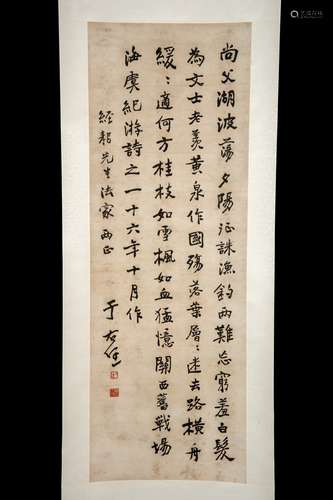 尚父湖波蕩夕陽征誅漁釣兩難忘窮羞白髮
為文士老羨黃泉作國殤落葉層:迷去路橫舟
緩:適何方桂枝如雪楓如血猛憶關西舊戰場
海虞紀游詩之一十六年十月作
經報先生法家兩正
于右任